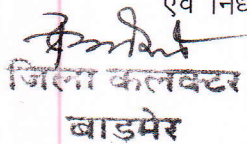 एवं
जिला कलक्टर
बाड़मेर